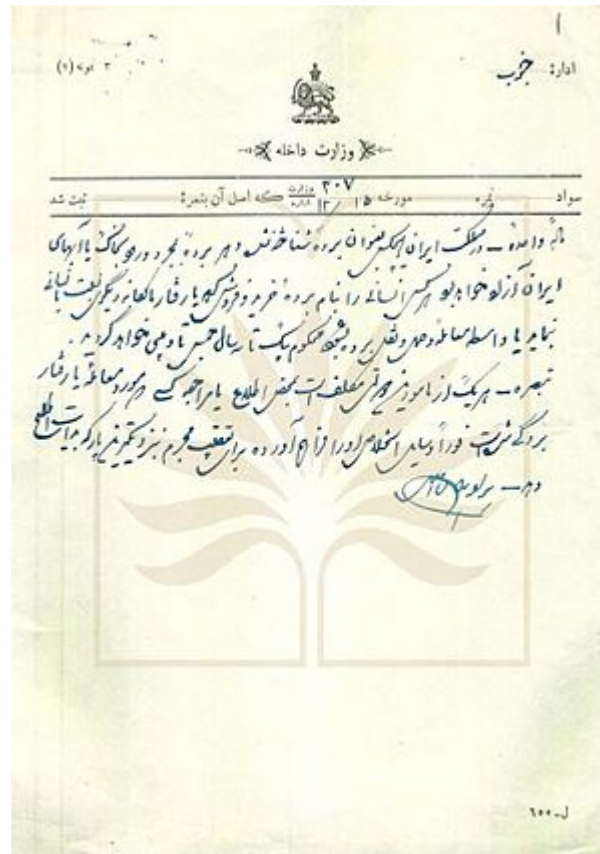 اداره جنوب
وزارت داخله
سواد نمره مورخه ۱۵/۱۲ ۳۰۷ وزارت اداره که اصل آن بنمرهٔ ثبت شد
مادهٔ واحده – در مملکت ایران هیچکس بعنوان برده شناخته نشده و هر برده بمجرد ورود بخاک یا آبهای
ایران آزاد خواهد بود هر کس انسانی را بنام برده خرید و فروش کرده یا رفتار مالکانه دیگری نسبت بانسانی
بنماید یا واسطه معامله و حمل و نقل برده بشود محکوم بیک تا سه سال حبس تادیبی خواهد گردید.
تبصره – هر یک از مامورین دولتی مکلف است بمحض اطلاع یا مراجعه کسی که مورد معامله یا رفتار
بردگی شده است فوراً وسایل استخلاص او را فراهم آورده برای تعقیب مجرم نزدیکترین پارکه بدایت را اطلاع
دهد –
ل–۶۵۵